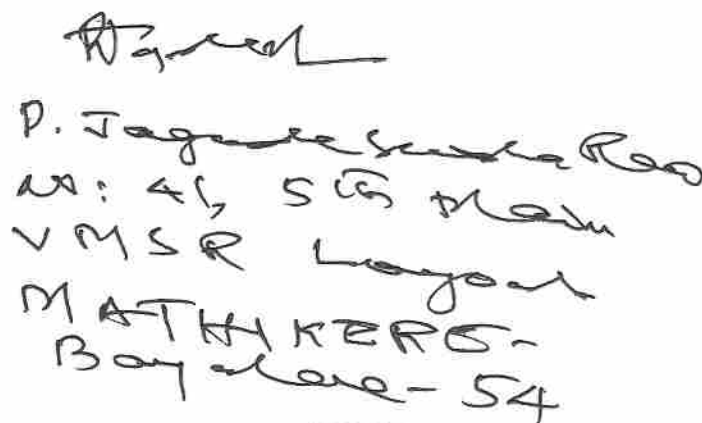 P. Jagannatha Rao
No: 41, 5th Main
VMSR Layout
MATHIKERE-
Bangalore-54